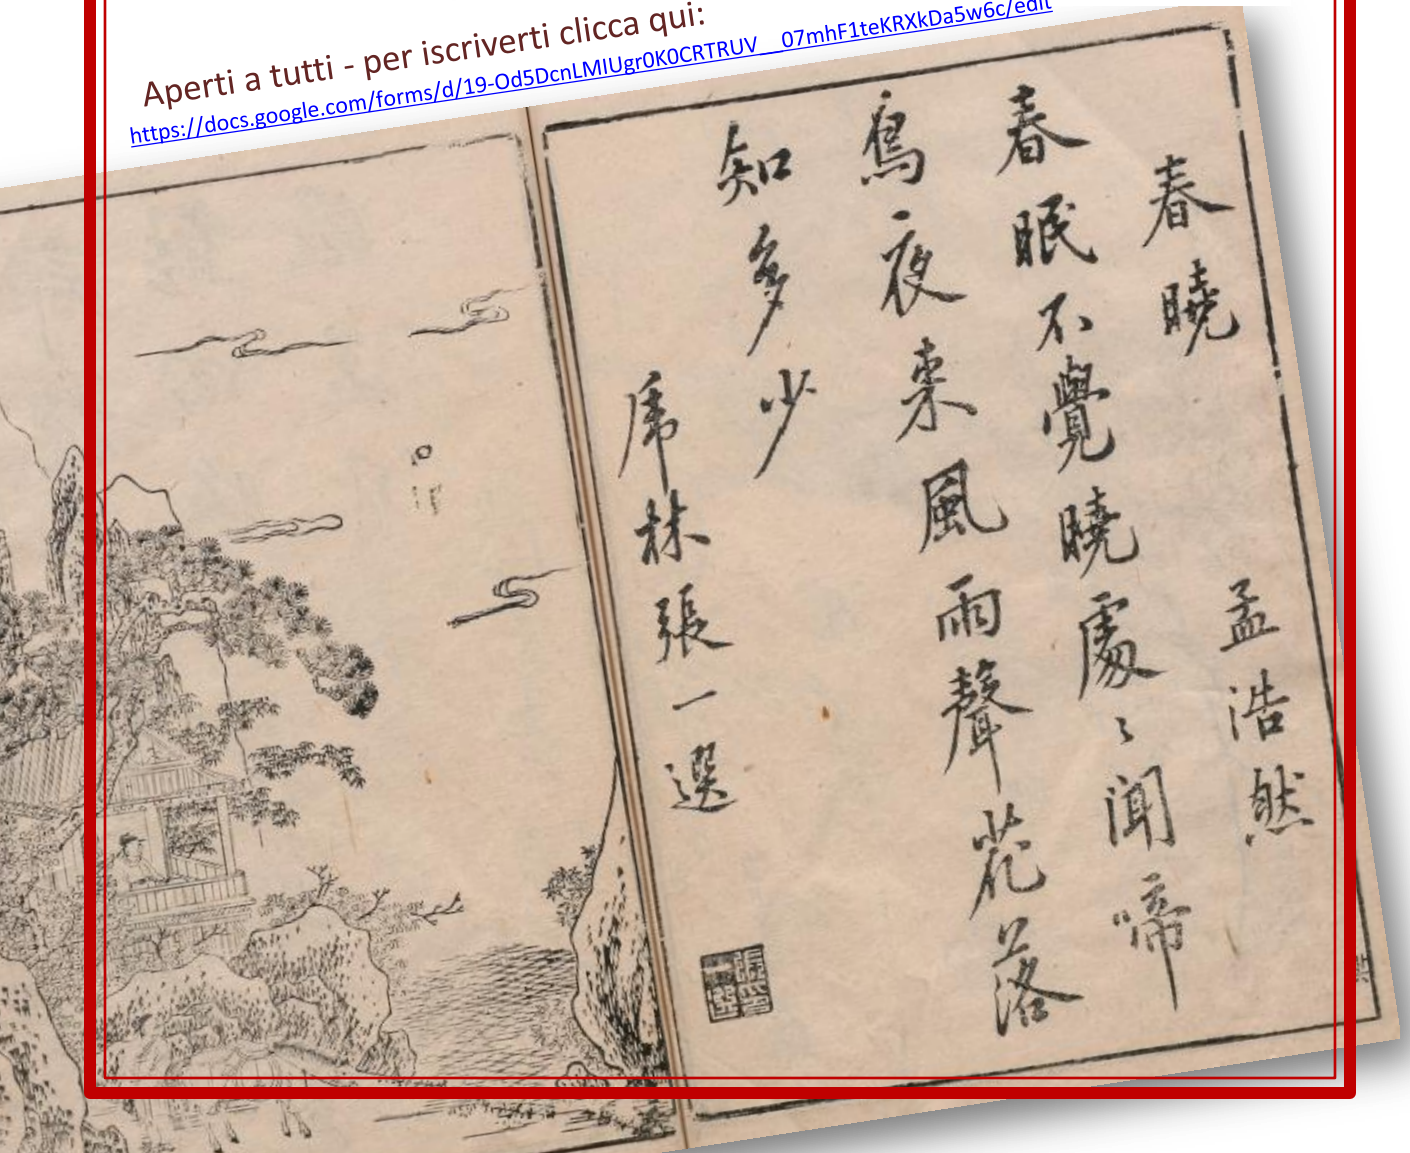 Aperti a tutti - per iscriverti clicca qui:
https://docs.google.com/forms/d/19-Od5DcnLMIUgr0K0CRTRUV__07mhF1teKRXkDa5w6c/edit
春曉
孟浩然
春眠不覺曉處〻聞啼
鳥夜来風雨聲花落
知多少
虎林張一選